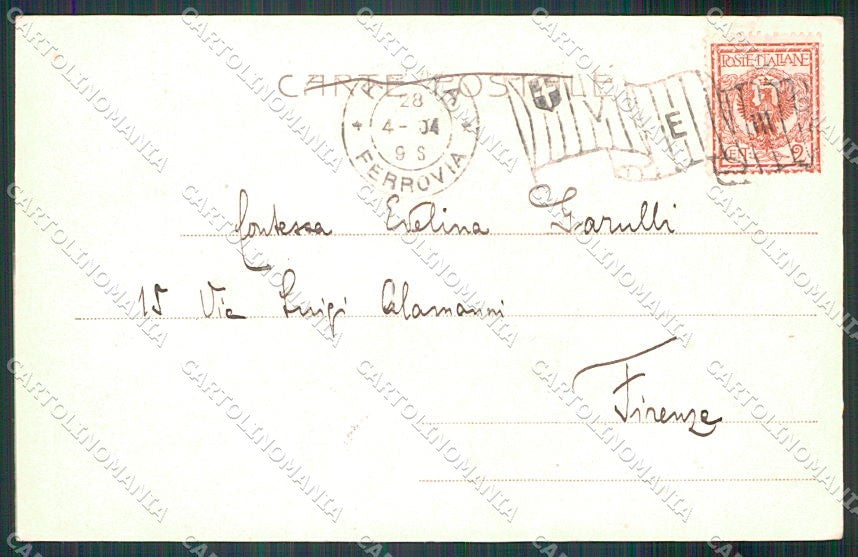 CARTE POSTALE
POSTE·ITALIANE
28
4-04
9 S
FERROVIA
V E III
CENT 2
Contessa Evelina Garulli
15 Via Luigi Alamanni
Firenze
CARTOLINOMANIA